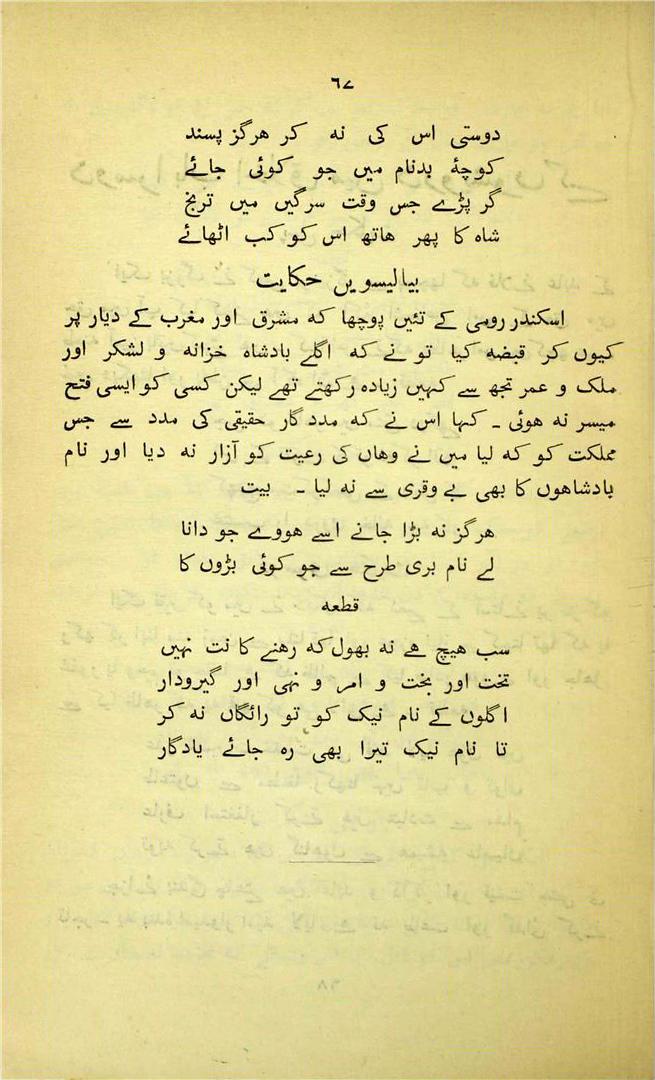 ٦٧
دوستی اس کی نہ کر ہرگز پسند
کوچۂ بدنام میں جو کوئی جائے
گر پڑے جس وقت سرگیں میں ترنج
شاہ کا پھر ہاتھ اس کو کب اٹھائے
بیالیسویں حکایت
اسکندر رومی کے تئیں پوچھا کہ مشرق اور مغرب کے دیار پر
کیوں کر قبضہ کیا تو نے کہ اگلے بادشاہ خزانہ و لشکر اور
ملک و عمر تجھ سے کہیں زیادہ رکھتے تھے لیکن کسی کو ایسی فتح
میسر نہ ہوئی ـ کہا اس نے کہ مددگار حقیقی کی مدد سے جس
مملکت کو کہ لیا میں نے وہاں کی رعیت کو آزار نہ دیا اور نام
بادشاہوں کا بھی بے وقری سے نہ لیا ـ بیت
ہرگز نہ بڑا جانے اسے ہووے جو دانا
لے نام بری طرح سے جو کوئی بڑوں کا
قطعہ
سب ہیچ ہے نہ بھول کہ رہنے کا نت نہیں
تخت اور بخت و امر و نہی اور گیرودار
اگلوں کے نام نیک کو تو رائگاں نہ کر
تا نام نیک تیرا بھی رہ جائے یادگار